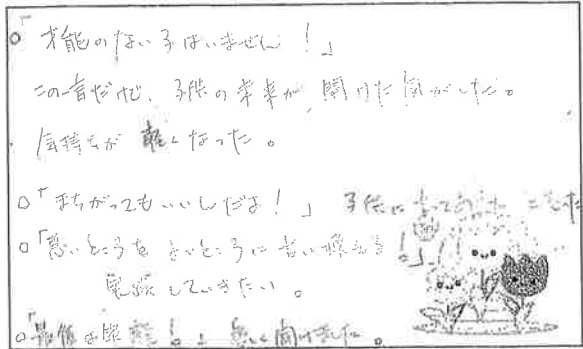 ○「才能のない子はいません！」
この言だけで、子供の将来が、開けた気がした。
気持ちが軽くなった。
○「まちがってもいいんだよ！」 子供に言ってあげ
○「悪いところをよいところに言い換える！」
実践していきたい。
○「最後は 」 楽しく聞けました。